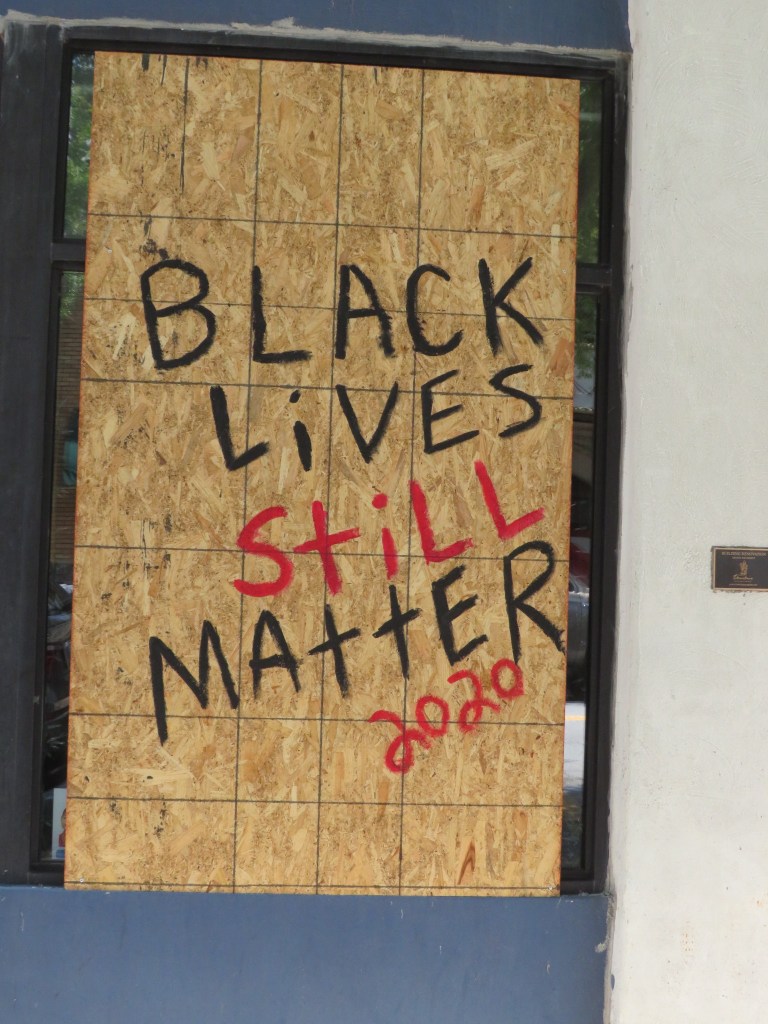 BLACK
LiVES
StiLL
MAttER
2020